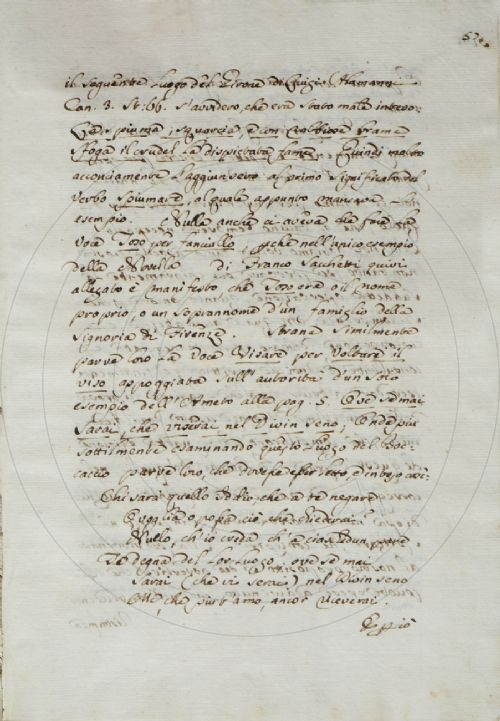 il seguente luogo del Girone di Luigi Alamanni
Can. 3. St. 66. s'avvidero, che era stato male
piuma, squarcia, e con rabbiosa fame
sfoga il crudel la dispietata fame. Quindi molto
acconciamente l'aggiunsero al primo significato del
verbo spiumare, al quale appunto mancava
esempio. Nulla anche ci aveva che fare la
voce Toso per fanciullo, perchè nell'unico esempio
della Novella di Franco Sacchetti quivi
allegato è manifesto che Toso era o il nome
proprio, o un soprannome d'un famiglio della
Signoria di Firenze. Strana similmente
parve loro la voce Visare per voltare il
viso appoggiata sull'autorità d'un solo
esempio dell'Ameto alla pag. 5 Ove se mai
Sarai, che viserai nel Divin seno; Onde più
sottilmente esaminando questo luogo del Boc-
caccio parve loro, che dovesse esser letto,
Chi sarà quello Iddio che a te negare
Voglia o possa ciò, che chiederai?
Nullo, ch'io creda, ch'a ciascun
Te degna del lor luogo, ove se mai
Sarai (che vi serai) nel Divin seno
che pur t'amo, ancor viceverai.
E più